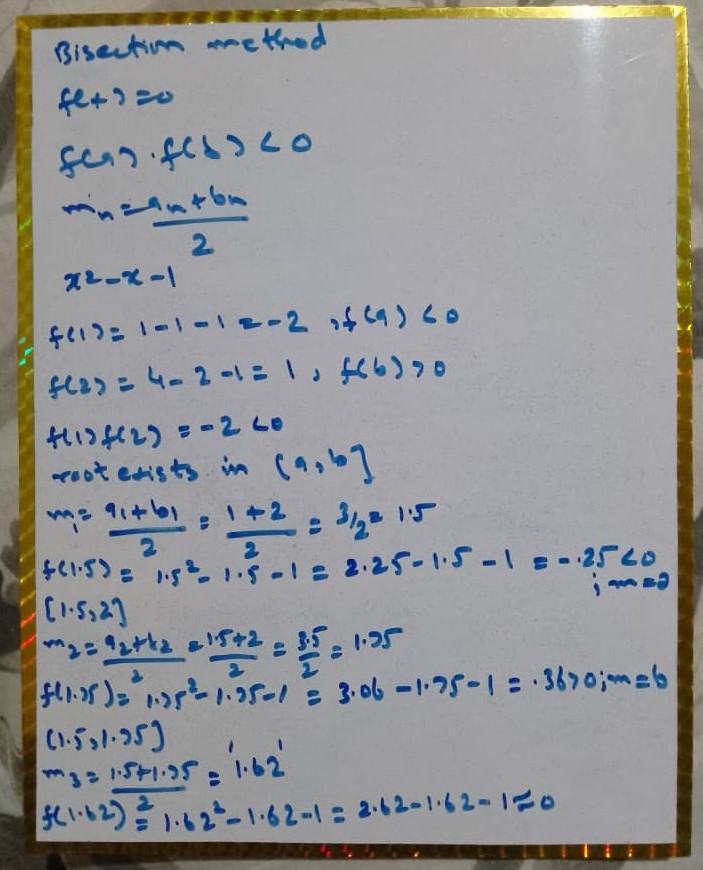 Bisection method
f(x)=0
f(a).f(b)<0
mₙ = aₙ+bₙ / 2
x²-x-1
f(1) = 1-1-1 = -2 , f(a) <0
f(2) = 4-2-1 = 1 , f(b) >0
f(1) f(2) = -2 <0
root exists in [a,b]
m₁ = a₁+b₁ / 2 = 1+2 / 2 = 3/2 = 1.5
f(1.5) = 1.5² - 1.5 - 1 = 2.25-1.5-1 = -.25<0
; m=a
[1.5,2]
m₂ = a₂+b₂ / 2 = 1.5+2 / 2 = 3.5 / 2 = 1.75
f(1.75) = 1.75²-1.75-1 = 3.06-1.75-1 = .36>0; m=b
[1.5,1.75]
m₃ = 1.5+1.75 / 2 = '1.62'
f(1.62) = 1.62²-1.62-1 = 2.62-1.62-1≈0